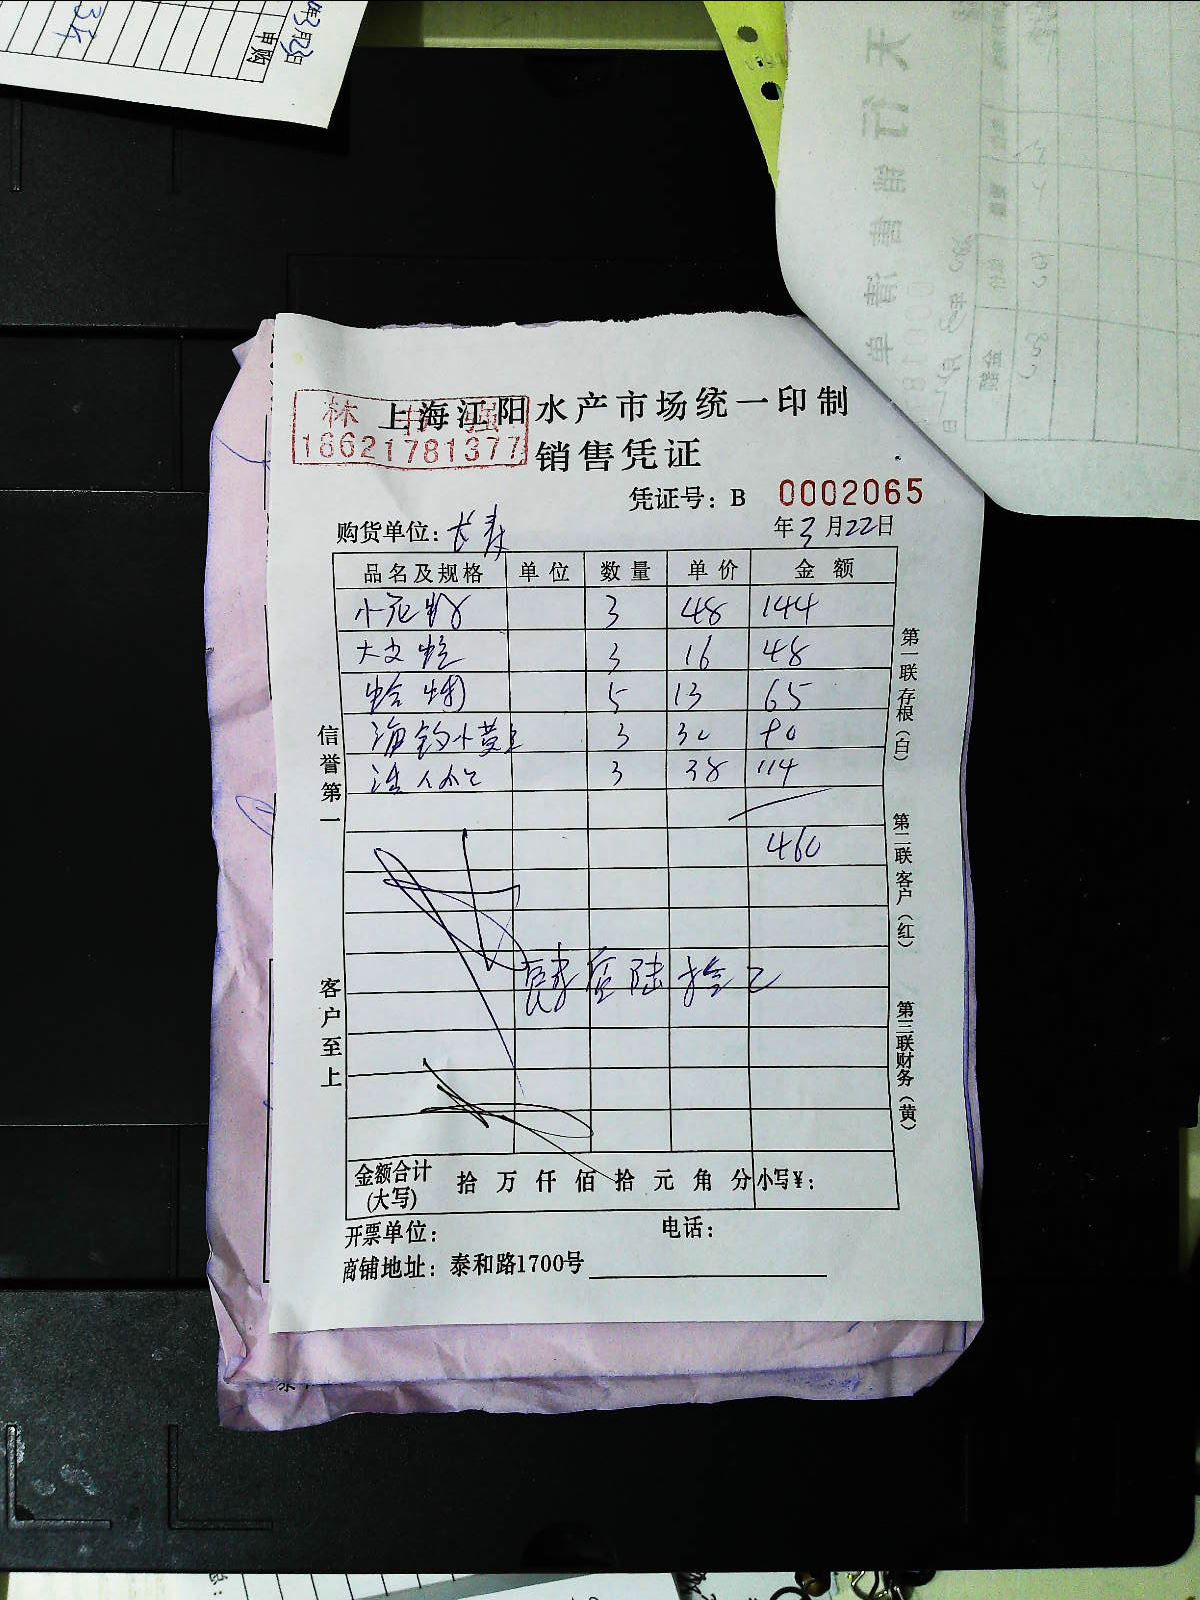 年3月23日
申购
上海江阳水产市场统一印制
林
18621781377
销售凭证
凭证号：B 0002065
购货单位：长寿
年3月22日
品名及规格 单位 数量 单价 金额
小花蛤 3 48 144
大文蛤 3 16 48
蛤蜊 5 13 65
海钓小黄鱼 3 30 90
3 38 114
460
肆佰陆拾元
信誉第一
客户至上
第一联存根（白）
第二联客户（红）
第三联财务（黄）
金额合计（大写） 拾万仟佰拾元角分 小写¥：
开票单位： 电话：
商铺地址：泰和路1700号